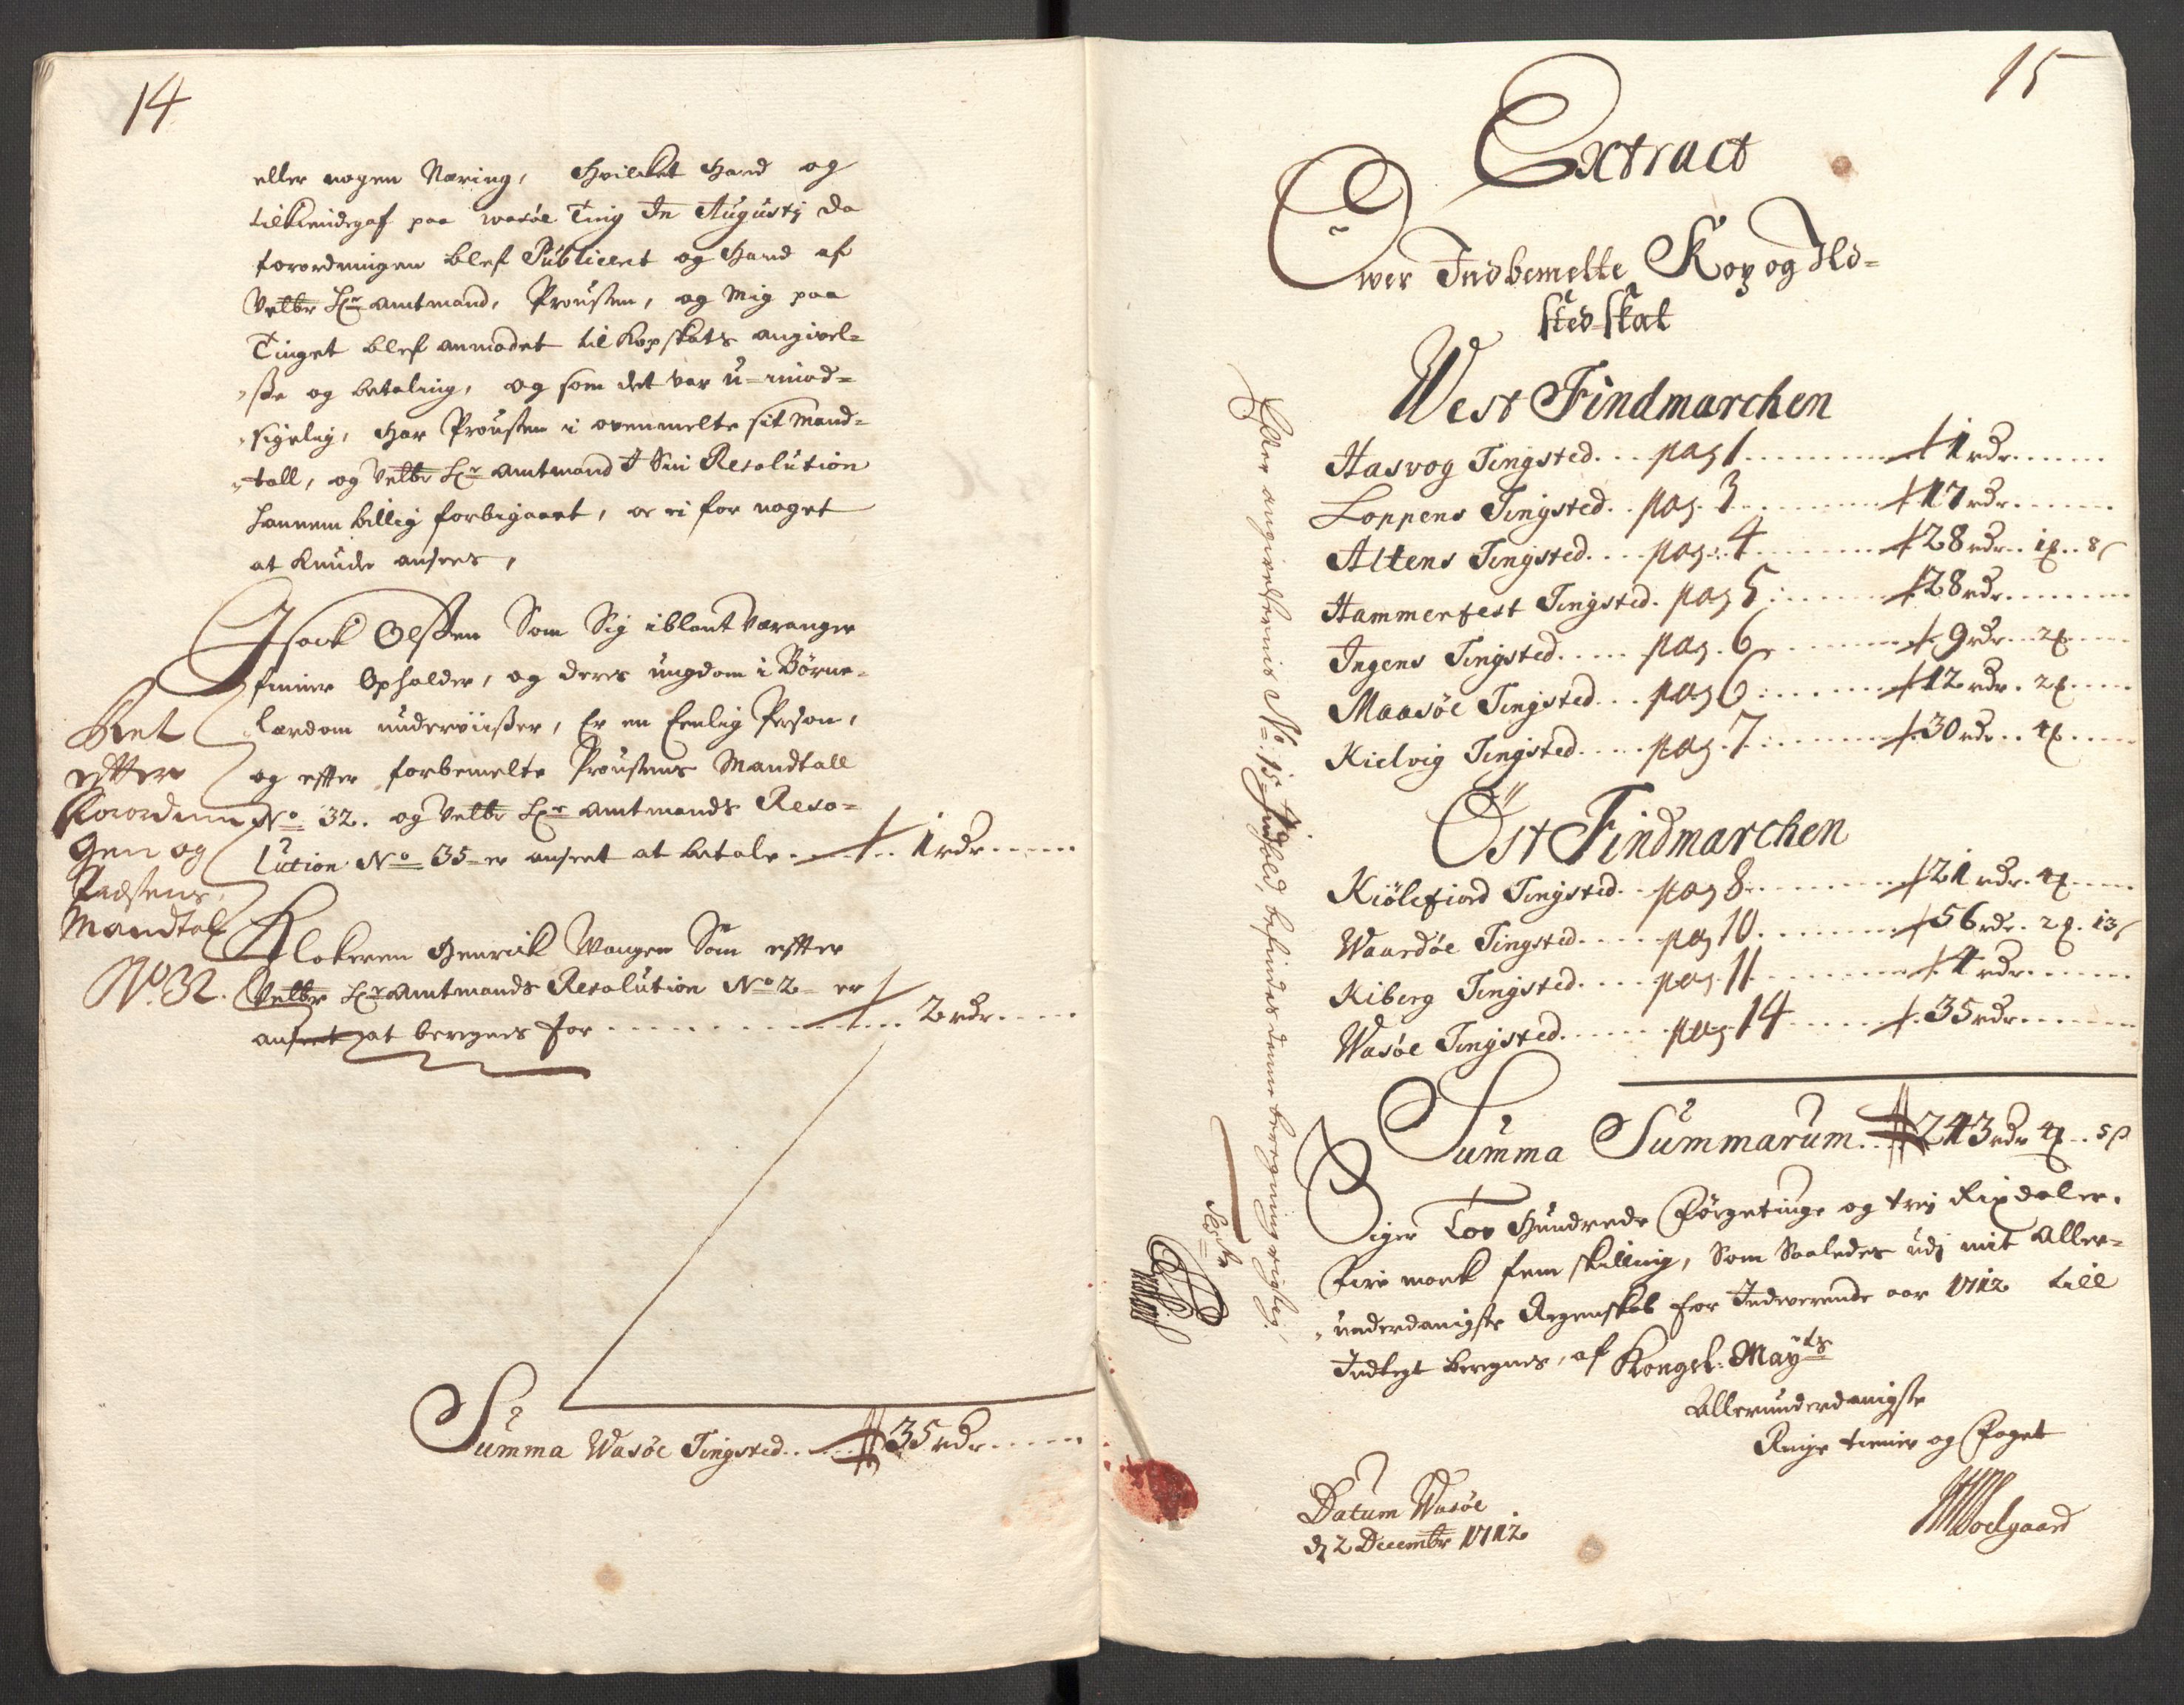 14
eller nogen Næring, Hvilcket Hand og
tilkiendegaf paa wasöe Ting In Augustj da
forordningen blef Publicert og Hand af
Velbr Hr amtmand, Prousten, og Mig paa
Tinget blef anmodet til Kopskats angivel=
sse og betaling, og som det var u-imod=
sigelig, Har Prousten i ovenmelte sit Mand=
tall, og Velbr Hr amtmand J Sin Resolution
hannem billig forbigaaet, or ei for noget
at kunde ansees,
Isack Olssen Som Sig iblant Varanger
finner Opholder, og deres ungdom i Börne=
lærdom underviisser, Er en Eenlig Person,
og efter forbemelte Proustens Mandtall
No 32. og Velbr Hr amtmands Reso=
lution No 35 er anseet at betale 1 rdr
Ret
efter
Forordnin
gen og
Præstens
Mandtal
No. 32.
Klokeren Henrick Wangen Som efter
Velbr Hr Amtmands Resolution No 2 er
anseet at beregnes for 2 rdr
Summa Wasöe Tingsted 35 rdr
15
Extract
Over Indbemelte Kop og Ild=
sted-skat
West Findmarchen
Hasvog Tingsted pag 1 1 rdr
Loppens Tingsted pag. 3 17 rdr
Altens Tingsted pag. 4 28 rdr 1 ꝑ 8 ß
Hammerfest Tingsted pag 5 28 rdr
Ingens Tingsted pag. 6 9 rdr 2 ꝑ
Maasöe Tingsted pag 6 12 rdr 2 ꝑ
Kielvig Tingsted pag. 7 30 rdr 4 ꝑ
Öst Findmarchen
Kiölefiord Tingsted pag 8 21 rdr 4 ꝑ
Waardöe Tingsted pag 10 56 rdr 2 ꝑ 13 ß
Kiberg Tingsted pag. 11 4 rdr
Wasöe Tingsted pag. 14 35 rdr
Summa Summarum 243 rdr 4 ꝑ 5 ß
Siger Toe Hundrede Förgetiuge og trej Rixdaler,
Fire mark fem skilling, Som Saaledes udj mit Aller=
underdanigste Regenskab for Indeverende aar 1712 till
Indtegt beregnes, af Kongel: Mayts
Allerunderdanigste
Ringe tiener og Foget
Datum Wasöe
dj 2 Decembr 1712
Efter angivelserne No: 15 Indhold, befindes denne beregning rigtig.